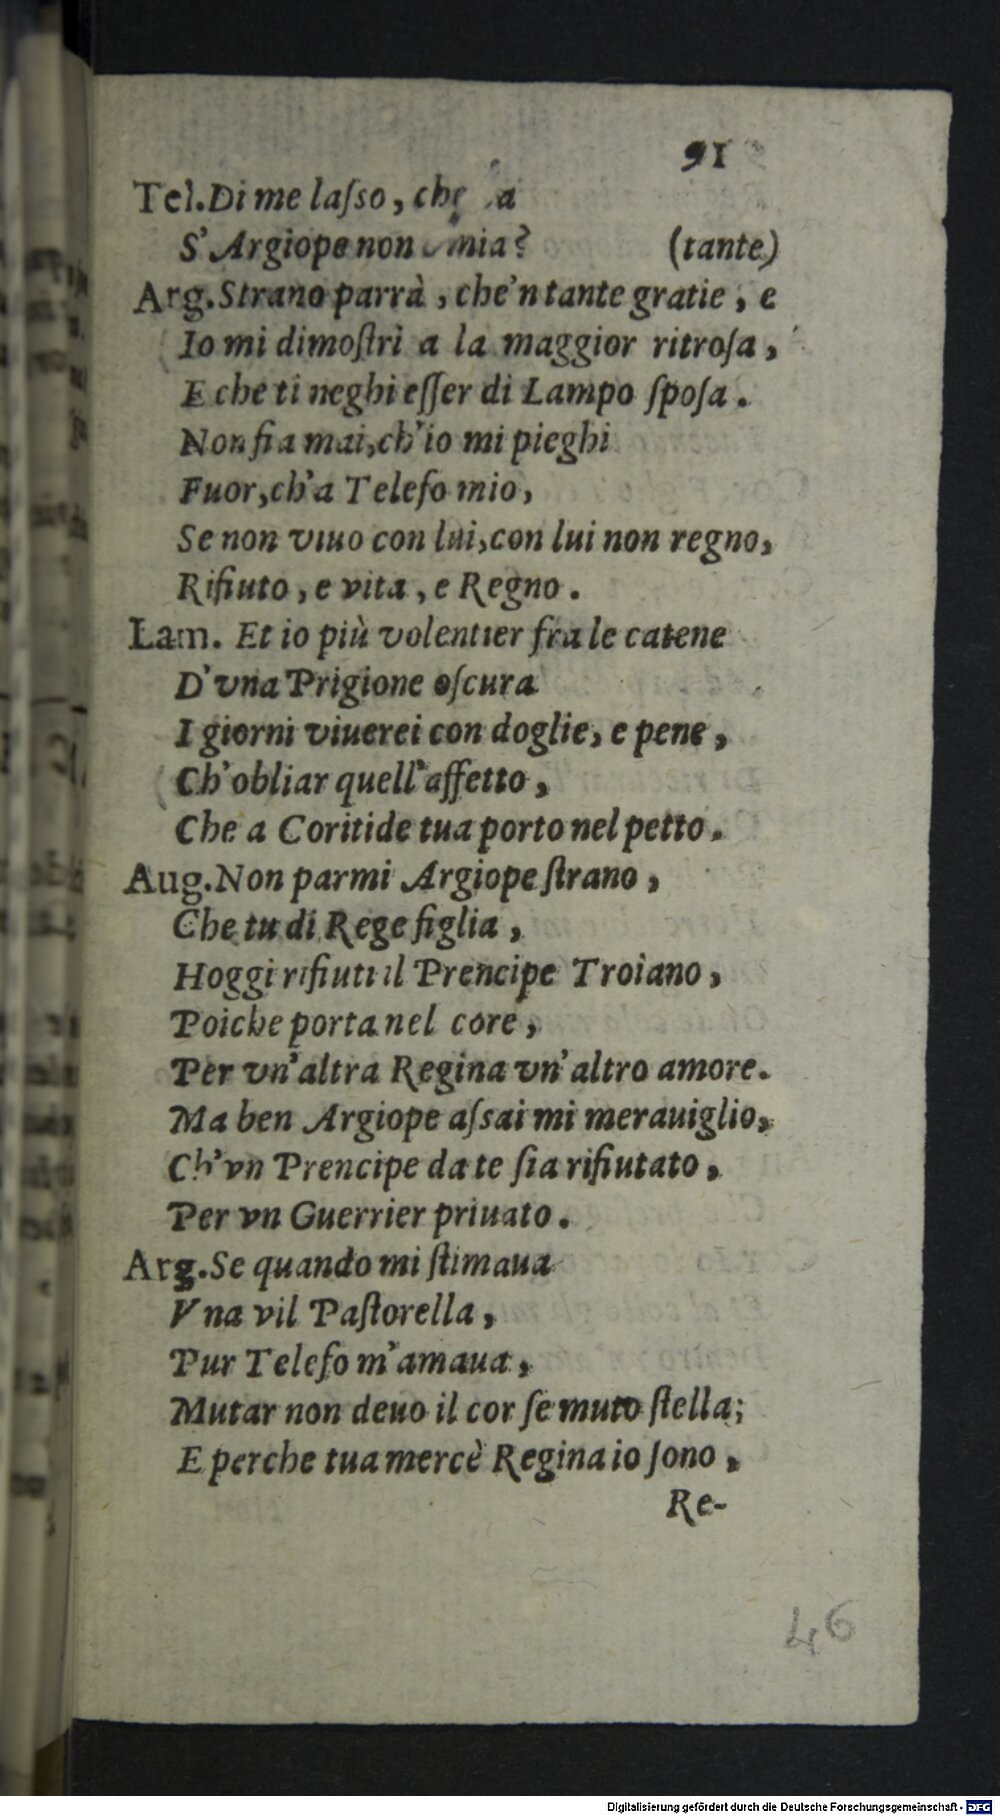 91
Tel. Di me lasso, che a
S'Argiope non mia? (tante)
Arg. Strano parrà, che'n tante gratie, e
Io mi dimostrì a la maggior ritrosa,
E che ti neghi esser di Lampo sposa.
Non fia mai, ch'io mi pieghi
Fuor, ch'a Telefo mio,
Se non viuo con lui, con lui non regno,
Rifiuto, e vita, e Regno.
Lam. Et io più volentier fra le catene
D'vna Prigione oscura
I giorni viuerei con doglie, e pene,
Ch'obliar quell'affetto,
Che a Coritide tua porto nel petto.
Aug. Non parmi Argiope strano,
Che tu di Rege figlia,
Hoggi rifiuti il Prencipe Troiano,
Poiche porta nel core,
Per vn'altra Regina vn'altro amore.
Ma ben Argiope assai mi merauiglio,
Ch'vn Prencipe da te sia rifiutato,
Per vn Guerrier priuato.
Arg. Se quando mi stimaua
Vna vil Pastorella,
Pur Telefo m'amaua,
Mutar non deuo il cor se muto stella;
E perche tua mercè Regina io sono,
Re-
46
Digitalisierung gefördert durch die Deutsche Forschungsgemeinschaft - DFG